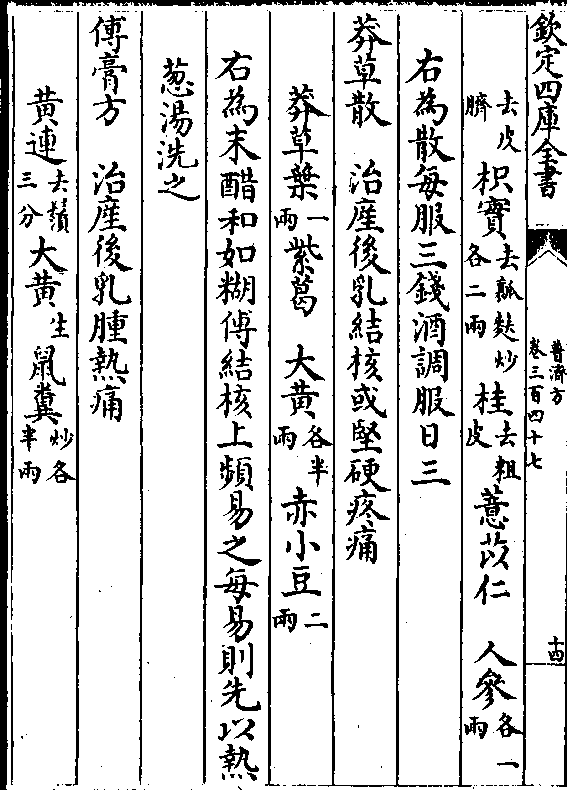 欽定四庫全書
普濟方
卷三百四十七
十四
去皮臍枳實去瓤麩炒各二兩桂去粗皮薏苡仁 人參各一兩
右為散每服三錢酒調服日三
莽草散 治産後乳結核或堅硬疼痛
莽草葉一兩紫葛 大黄各半兩赤小豆二兩
右為末醋和如糊傅結核上頻易之每易則先以熱
葱湯洗之
傅膏方 治産後乳腫熱痛
黄連去鬚三分大黄生鼠糞炒各半兩